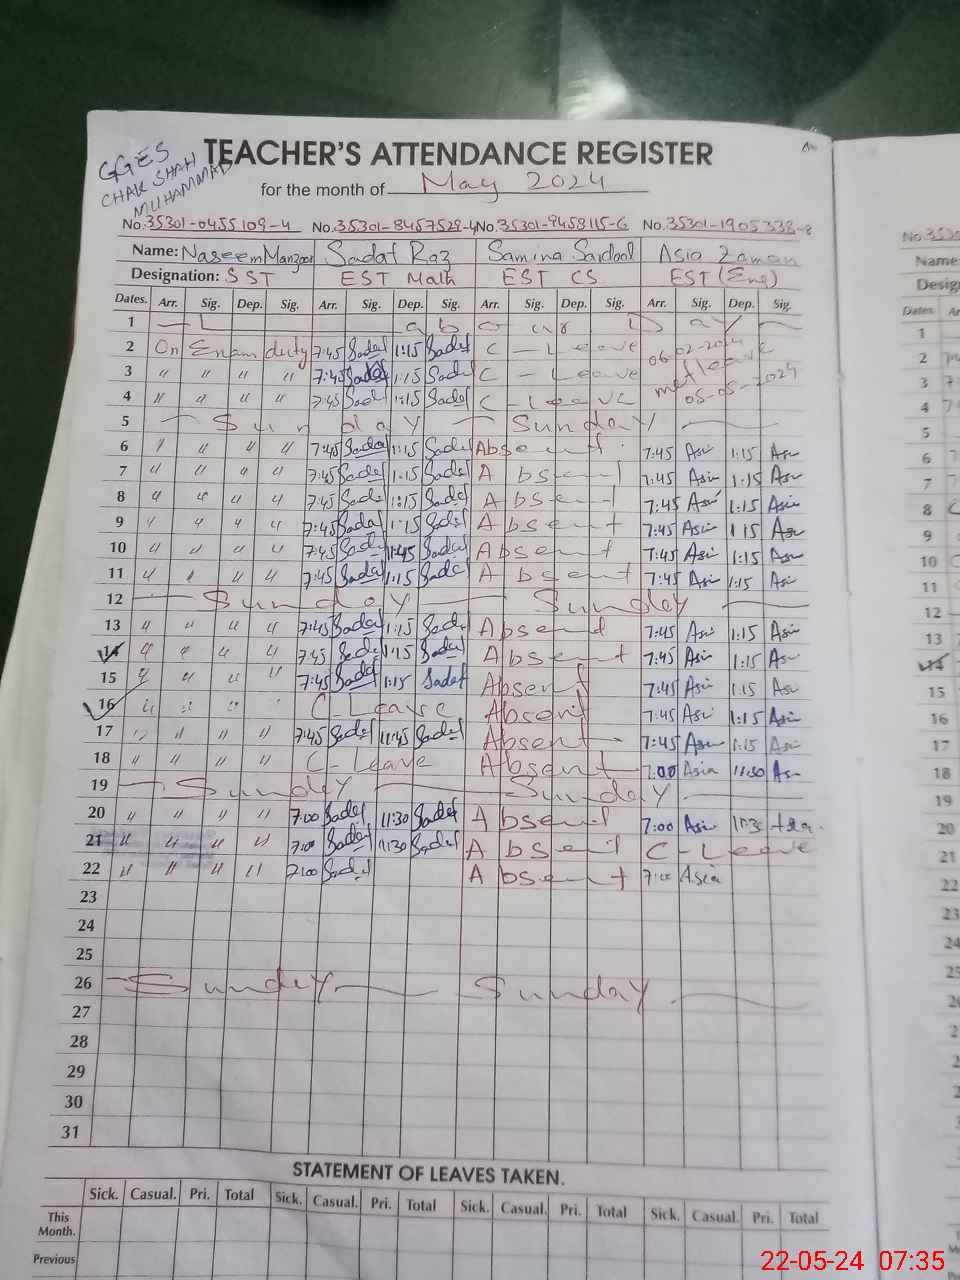 GGES
CHAK SHAH
MUHAMMAD
TEACHER'S ATTENDANCE REGISTER
for the month of May 2024
No. 35301-0455109-4 No. 35301-8457529-4 No. 35301-9458115-6 No. 35301-1905338-8
Name: Naseem Manzoor Sadaf Raz Samina Sardool Asia Zaman
Designation: SST EST Math EST CS EST (Eng)
Dates. Arr. Sig. Dep. Sig. Arr. Sig. Dep. Sig. Arr. Sig. Dep. Sig. Arr. Sig. Dep. Sig.
1 Labour Day
2 On Exam duty 7:45 Sadaf 1:15 Sadaf C-Leave 06-02-2024
3 " " " " 7:45 Sadaf 1:15 Sadaf C-Leave leave
4 " " " " 7:45 Sadaf 1:15 Sadaf C-Leave 05-05-2024
5 Sunday Sunday
6 " " " " 7:45 Sadaf 1:15 Sadaf Absent 7:45 Asia 1:15 Asia
7 " " " " 7:45 Sadaf 1:15 Sadaf Absent 7:45 Asia 1:15 Asia
8 " " " " 7:45 Sadaf 1:15 Sadaf Absent 7:45 Asia 1:15 Asia
9 " " " " 7:45 Sadaf 1:15 Sadaf Absent 7:45 Asia 1:15 Asia
10 " " " " 7:45 Sadaf 11:45 Sadaf Absent 7:45 Asia 1:15 Asia
11 " " " " 7:45 Sadaf 1:15 Sadaf Absent 7:45 Asia 1:15 Asia
12 Sunday Sunday
13 " " " " 7:45 Sadaf 1:15 Sadaf Absent 7:45 Asia 1:15 Asia
14 " " " " 7:45 Sadaf 1:15 Sadaf Absent 7:45 Asia 1:15 Asia
15 " " " " 7:45 Sadaf 1:15 Sadaf Absent 7:45 Asia 1:15 Asia
16 " " " " C-Leave Absent 7:45 Asia 1:15 Asia
17 " " " " 7:45 Sadaf 11:45 Sadaf Absent 7:45 Asia 1:15 Asia
18 " " " " C-Leave Absent 7:00 Asia 11:30 Asia
19 Sunday Sunday
20 " " " " 7:00 Sadaf 11:30 Sadaf Absent 7:00 Asia 11:30 Asia
21 " " " " 7:00 Sadaf 11:30 Sadaf Absent C-Leave
22 " " " " 7:00 Sadaf Absent 7:00 Asia
23
24
25
26 Sunday Sunday
27
28
29
30
31
STATEMENT OF LEAVES TAKEN.
Sick. Casual. Pri. Total Sick. Casual. Pri. Total Sick. Casual. Pri. Total Sick. Casual. Pri. Total
This Month.
Previous
22-05-24 07:35